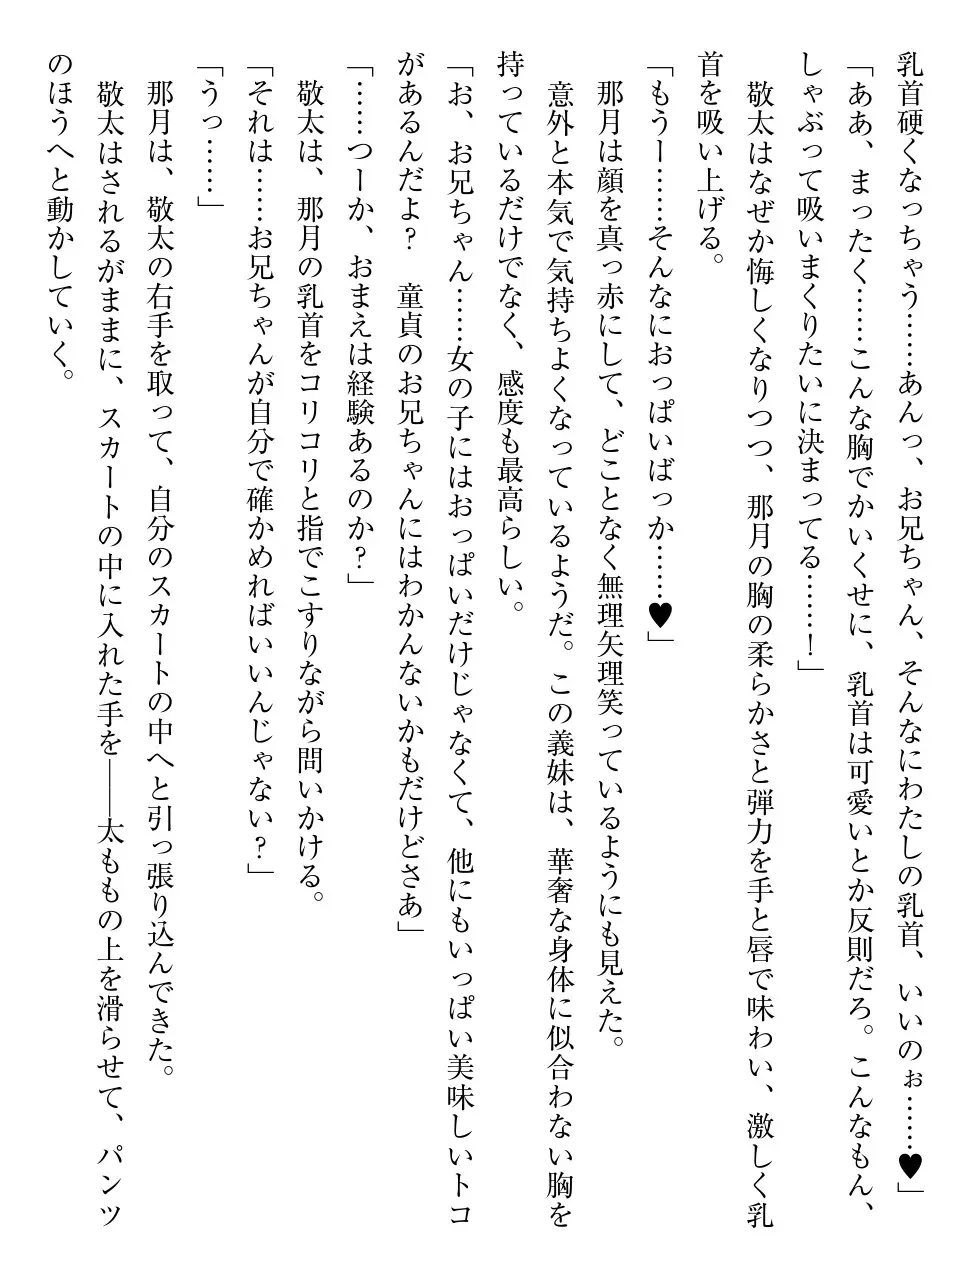 乳首硬くなっちゃう……あんっ、お兄ちゃん、そんなにわたしの乳首、いいのぉ……♥」
「ああ、まったく……こんな胸でかいくせに、乳首は可愛いとか反則だろ。こんなもん、
しゃぶって吸いまくりたいに決まってる……！」
　敬太はなぜか悔しくなりつつ、那月の胸の柔らかさと弾力を手と唇で味わい、激しく乳
首を吸い上げる。
「もうー……そんなにおっぱいばっか……♥」
　那月は顔を真っ赤にして、どことなく無理矢理笑っているようにも見えた。
　意外と本気で気持ちよくなっているようだ。この義妹は、華奢な身体に似合わない胸を
持っているだけでなく、感度も最高らしい。
「お、お兄ちゃん……女の子にはおっぱいだけじゃなくて、他にもいっぱい美味しいトコ
があるんだよ？　童貞のお兄ちゃんにはわかんないかもだけどさあ」
「……つーか、おまえは経験あるのか？」
　敬太は、那月の乳首をコリコリと指でこすりながら問いかける。
「それは……お兄ちゃんが自分で確かめればいいんじゃない？」
「うっ……」
　那月は、敬太の右手を取って、自分のスカートの中へと引っ張り込んできた。
　敬太はされるがままに、スカートの中に入れた手を――太ももの上を滑らせて、パンツ
のほうへと動かしていく。